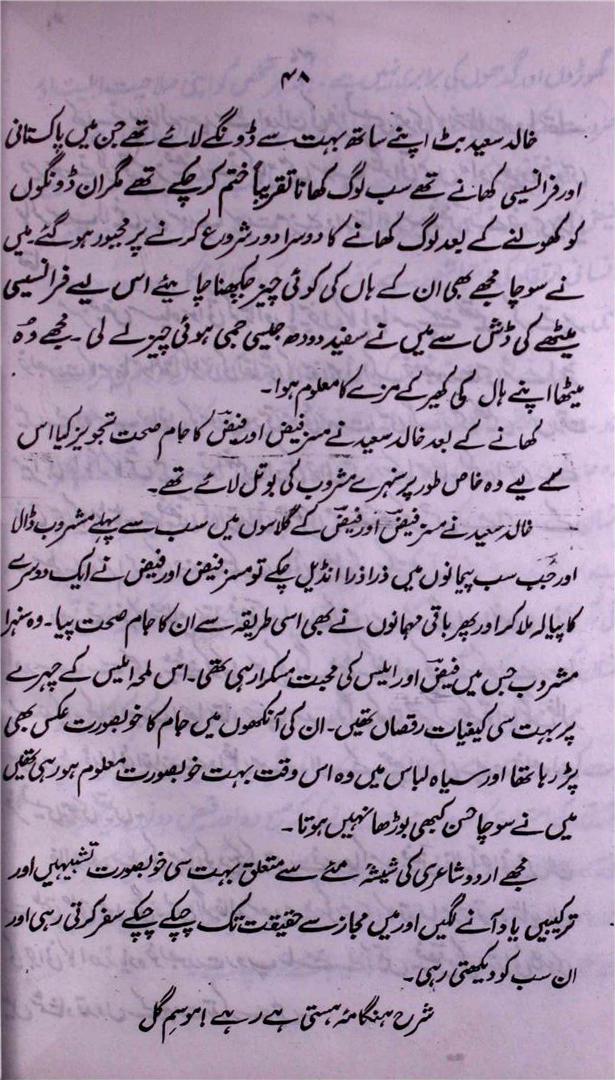 ۴۸
خالد سعید بٹ اپنے ساتھ بہت سے ڈونگے لائے تھے جن میں پاکستانی
اور فرانسیسی کھانے تھے سب لوگ کھانا تقریباً ختم کر چکے تھے مگر ان ڈونگوں
کو کھولنے کے بعد لوگ کھانے کا دوسرا دور شروع کرنے پر مجبور ہو گئے۔ میں
نے سوچا مجھے بھی ان کے ہاں کی کوئی چیز چکھنا چاہئے اس لیے فرانسیسی
میٹھے کی ڈش سے میں نے سفید دودھ جیسی جمی ہوئی چیز لے لی۔ مجھے وہ
میٹھا اپنے ہاں کی کھیر کے مزے کا معلوم ہوا۔
کھانے کے بعد خالد سعید نے مسز فیض اور فیضؔ کا جام صحت تجویز کیا اس
کے لیے وہ خاص طور پر سنہرے مشروب کی بوتل لائے تھے۔
خالد سعید نے مسز فیضؔ اور فیضؔ کے گلاسوں میں سب سے پہلے مشروب ڈالا
اور جب سب پیمانوں میں ذرا ذرا انڈیل چکے تو مسز فیض اور فیض نے ایک دوسرے
کا پیالہ ملا کر اور پھر باقی مہمانوں نے بھی اسی طریقہ سے ان کا جام صحت پیا۔ وہ سنہرا
مشروب جس میں فیضؔ اور ایلس کی محبت مسکرا رہی تھی۔ اس لمحہ ایلس کے چہرے
پر بہت سی کیفیات رقصاں تھیں۔ ان کی آنکھوں میں جام کا خوبصورت عکس بھی
پڑ رہا تھا اور سیاہ لباس میں وہ اس وقت بہت خوبصورت معلوم ہو رہی تھیں
میں نے سوچا حسن کبھی بوڑھا نہیں ہوتا۔
مجھے اردو شاعری کی شیشۂ مئے سے متعلق بہت سی خوبصورت تشبیہیں اور
ترکیبیں یاد آنے لگیں اور میں مجاز سے حقیقت تک چپکے چپکے سفر کرتی رہی اور
ان سب کو دیکھتی رہی۔
شرح ہنگامۂ ہستی ہے رہے! موسمِ گل